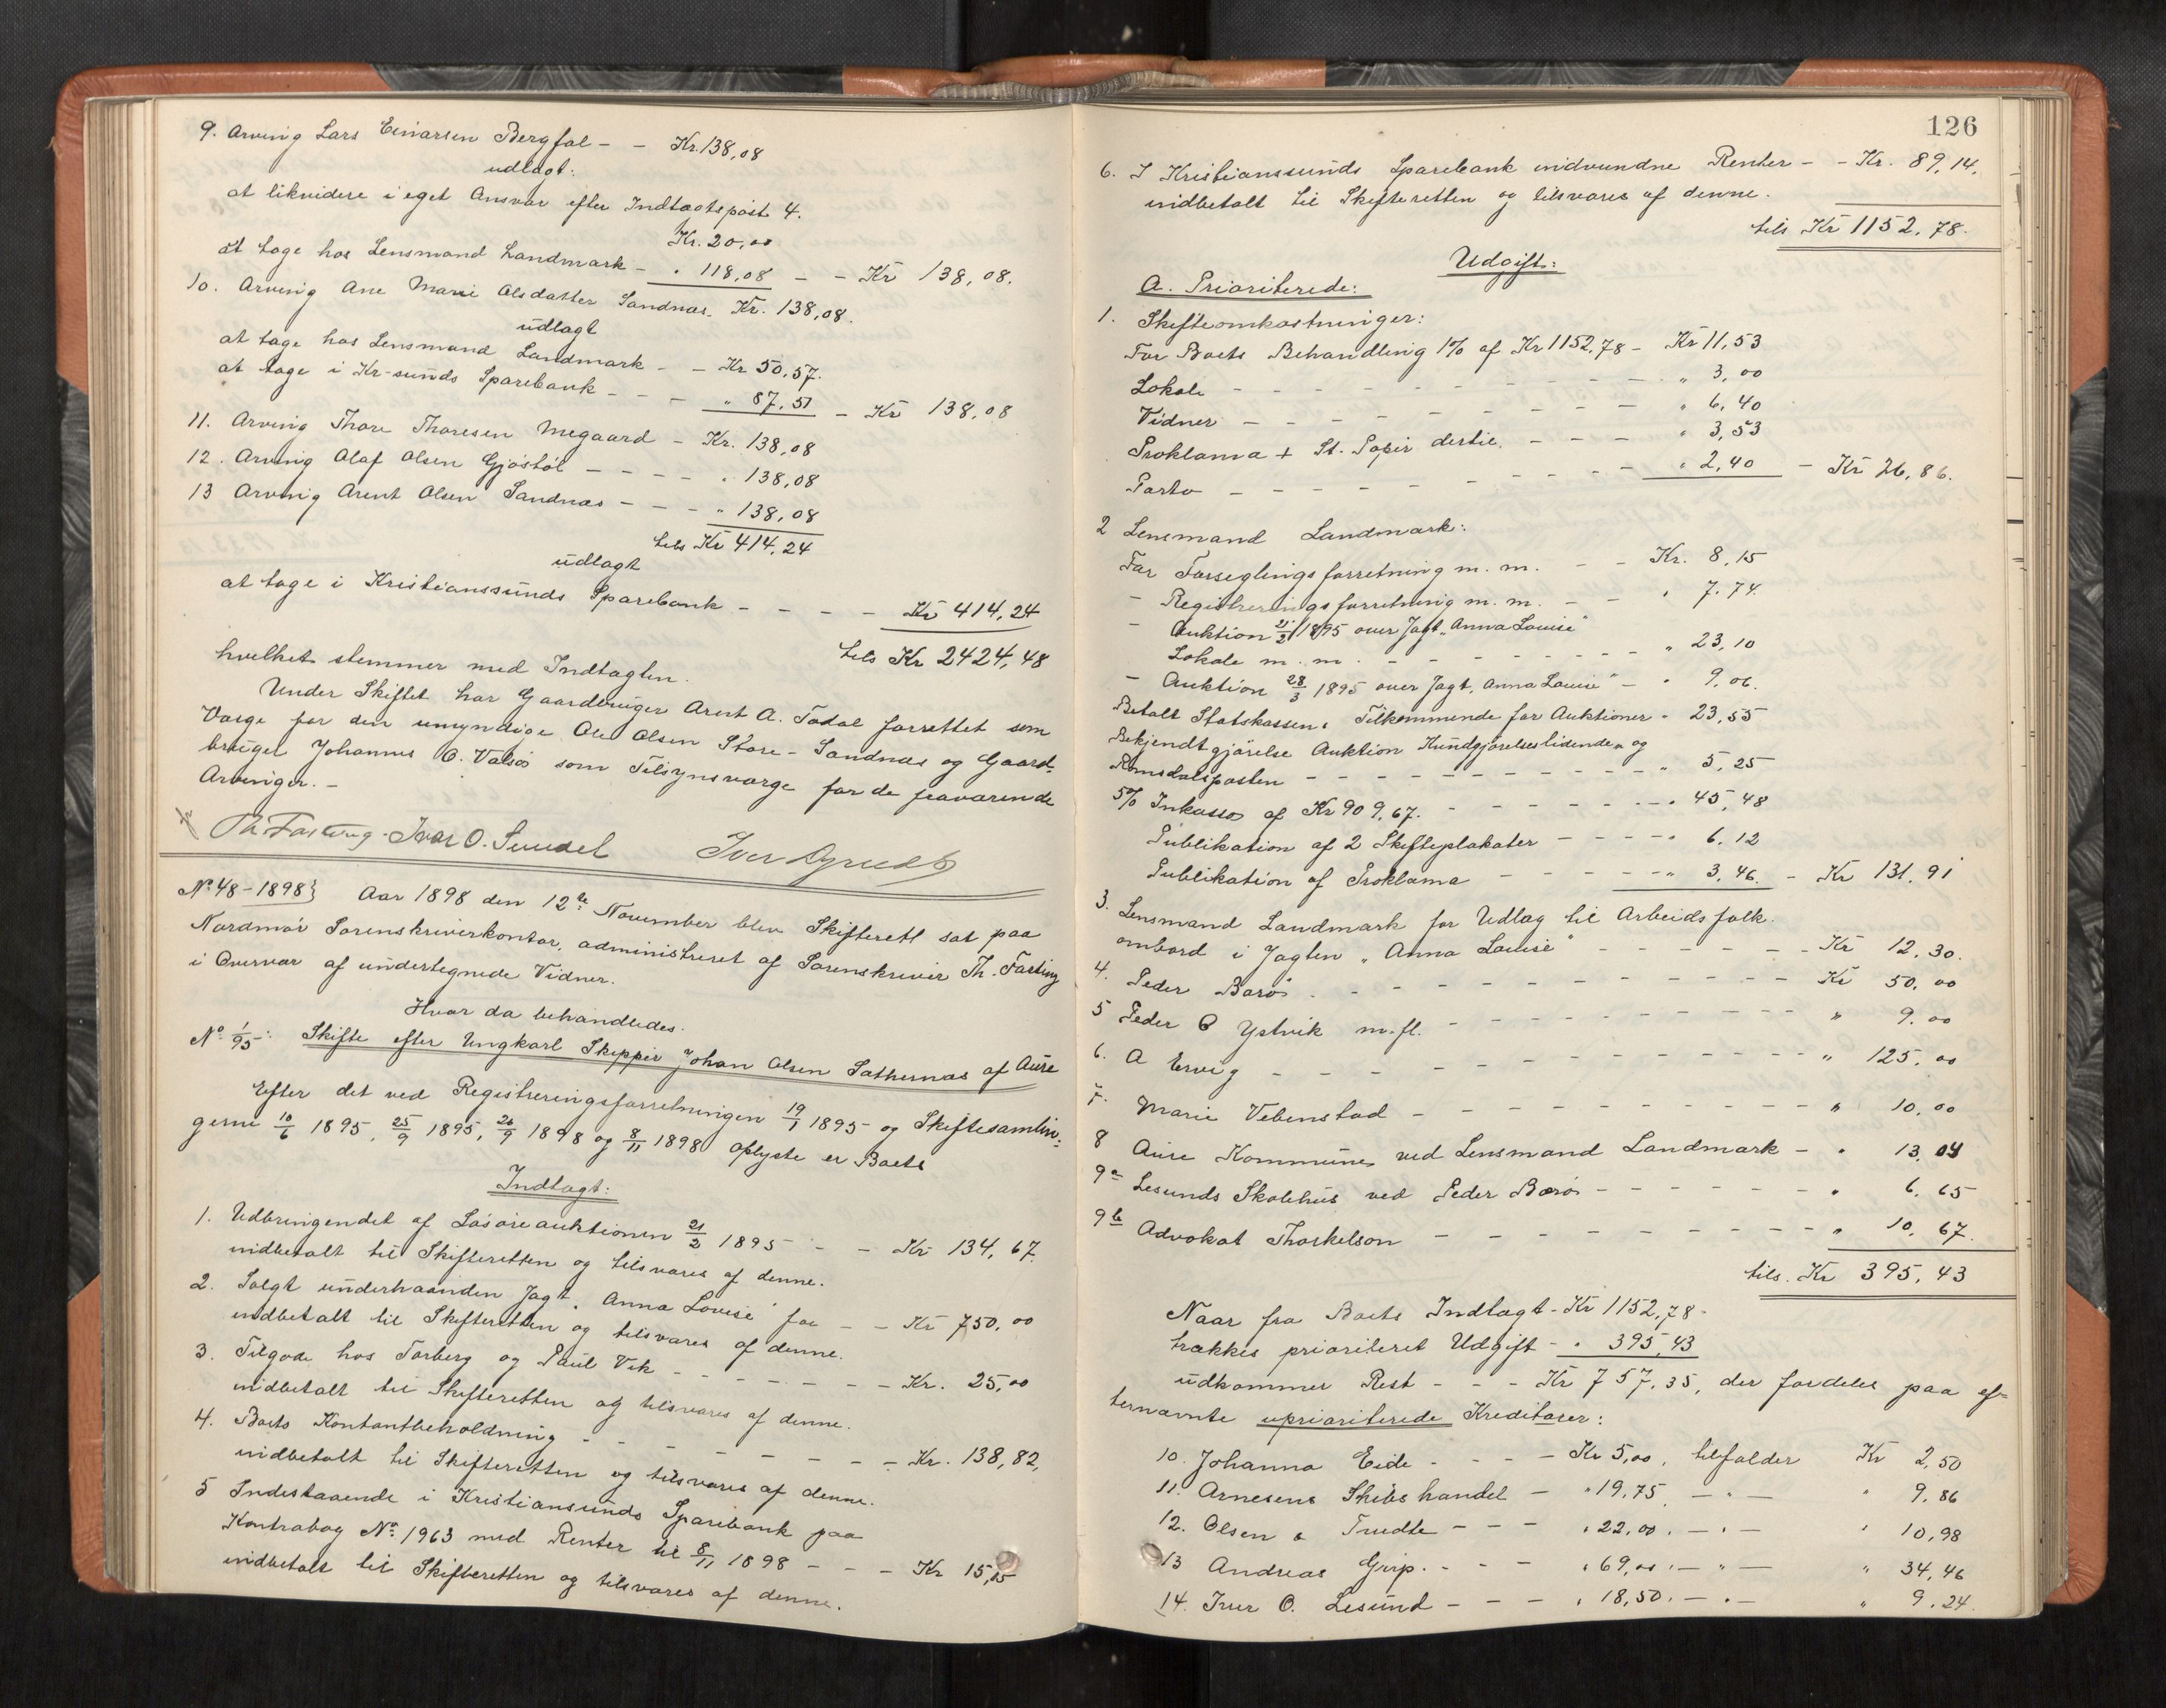 9. Arving Lars Einarsen Bergfal - - Kr. 138,08
udlagt:
at likvidere i eget Ansvar efter Indtægtspost 4.
Kr. 20,00
at tage hos Lensmand Landmark - " 118,08 - - Kr 138,08.
10. Arving Ane Marie Olsdatter Sandnæs. Kr. 138,08.
udlagt
at tage hos Lensmand Landmark - - Kr 50,57.
at tage i Kr-sunds Sparebank - - - " 87,51 - Kr 138,08
11. Arving Thore Thoresen Megaard - Kr. 138,08
12. Arving Olaf Olsen Gjöstöl - - - " 138,08
13 Arving Arent Olsen Sandnæs - - - " 138,08
tils Kr 414,24
udlagt
at tage i Kristianssunds Sparebank - - - - Kr 414,24
tils Kr 2424,48
hvilket stemmer med Indtægten.
Under Skiftet har Gaardbruger Arent A. Todal forrettet som
Værge for den umyndige Ole Olsen Store-Sandnæs og Gaard-
bruger Johannes O. Valsö som Tilsynsværge for de fraværende
Arvinger. -
Th. Fasting. Ivar O. Sundel Iver
No 48-1898} Aar 1898 den 12te November blev Skifteret sat paa
Nordmör Sorenskriverkontor, administreret af Sorenskriver Th. Fasting
i Overvær af undertegnede Vidner.
Hvor da behandledes.
No 1/95: Skifte efter Ungkarl Skipper Johan Olsen Sæthernæs af Aure
Efter det ved Registreringsforretningen 19/1 1895 og Skiftesamlin-
gerne 10/6 1895, 25/9 1895, 26/9 1898 og 8/11 1898 oplyste er Boets
Indtægt:
1. Udbringendet af Lösöreauktionen 21/2 1895 - - Kr 134,67.
indbetalt til Skifteretten og tilsvares af denne.
2. Solgt underhaanden Jagt "Anna Lovise" for - - Kr 750,00
indbetalt til Skifteretten og tilsvares af denne.
3. Tilgode hos Torberg og Paul Vik - - - - - - Kr. 25,00
indbetalt til Skifteretten og tilsvares af denne.
4. Boets Kontantbeholdning - - - - - - - Kr. 138,82,
indbetalt til Skifteretten og tilsvares af denne.
5 Indestaaende i Kristiansunds Sparebank paa
Kontrabog No 1963 med Renter til 8/11 1898 - - - Kr 15,15
indbetalt til Skifteretten og tilsvares af denne.
126
6. I Kristianssunds Sparebank indvundne Renter - - Kr. 89,14.
indbetalt til Skifteretten og tilsvares af denne.
tils Kr 1152,78.
Udgift:
A. Prioriterede:
1. Skifteomkostninger:
For Boets Behandling 1% af Kr 1152,78 - Kr 11,53
Lokale - - - - - - - - - " 3,00
Vidner - - - - - - - - - " 6,40
Proklama + St. Papir dertil. - - - " 3,53
Porto - - - - - - - - - " 2,40 - Kr 26,86.
2 Lensmand Landmark:
For Forseglingsforretning m. m. - - Kr. 8,15
- Registreringsforretning m. m. - - " 7.74.
- Auktion 21/2 1895 over Jagt "Anna Louise"
Lokale m. m. - - - - - - - - " 23,10
- Auktion 28/3 1895 over Jagt "Anna Louise" - " 9,06.
Betalt Statskassens Tilkommende for Auktioner " 23,55
Bekjendtgjörelse Auktion Kundgjörelsestidende og
Romsdalsposten - - - - - - - - - - " 5,25
5% Inkasso af Kr 909,67. - - - - - - " 45,48
Publikation af 2 Skifteplakater - - - - " 6,12
Publikation af Proklama - - - - - " 3,46. - Kr 131,91
3. Lensmand Landmark for Udlæg til Arbeidsfolk
ombord i Jagten "Anna Louise" - - - - - - Kr 12,30.
4. Peder Barö - - - - - - - - - - Kr 50,00
5 Peder O Ystvik m.fl. - - - - - - - - - " 9.00
6. A Ervig - - - - - - - - - - - " 125,00
7. Marie Vebenstad - - - - - - - - - - " 10,00
8 Aure Kommune ved Lensmand Landmark - " 13,04
9a Lesunds Skolehus ved Peder Barö - - - - - - " 6,65
9b Advokat Thorkelson - - - - - - - - " 10,67.
tils. Kr 395,43
Naar fra Boets Indtægt - Kr 1152,78 -
trækkes prioriteret Udgift - " 395,43
udkommer Rest - - - Kr 757,35, der fordeles paa ef-
ternævnte uprioriterede Kreditorer:
10. Johanna Eide - - - Kr 5,00, tilfalder Kr 2,50
11. Arnesens Skibshandel - " 19,75 - " - " 9,86
12. Olsen & Trudte - - - " 22,00. - " - " 10,98
13 Andreas Grip. - - - " 69,00. - " - " 34,46
14. Iver O. Lesund - - - " 18,50. - " - " 9,24.